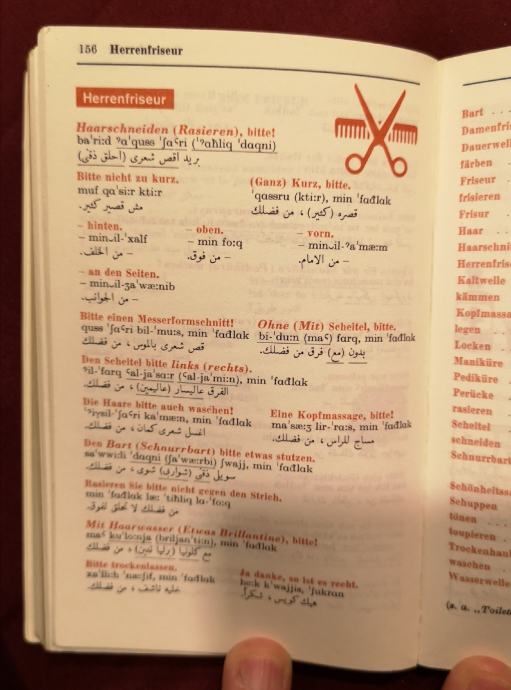 156 Herrenfriseur
Herrenfriseur
Haarschneiden (Rasieren), bitte!
ba'ri:d ˀa'quss 'ʃaˤri ('ˀaħliq 'daqni)
بريد اقص شعرى (احلق ذقنى)
Bitte nicht zu kurz.
muʃ qa'si:r kti:r
مش قصير كثير.
(Ganz) Kurz, bitte.
'qassru (kti:r), min 'fađlak
قصره (كثير) ، من فضلك
– hinten.
– min‿il-'xalf
– من الخلف.
– oben.
– min fo:q
– من فوق.
– vorn.
– min‿il-ˀa'mæ:m
– من الامام.
– an den Seiten.
– min‿il-ʒa'wæ:nib
– من الجوانب.
Bitte einen Messerformschnitt!
quss 'ʃaˤri bil-'mu:s, min 'fađlak
قص شعرى بالموس ، من فضلك.
Ohne (Mit) Scheitel, bitte.
bi-'du:n (maˤ) farq, min 'fađlak
بدون (مع) فرق من فضلك.
Den Scheitel bitte links (rechts).
ˀil-'farq ˤal-ja'sa:r (ˤal-ja'mi:n), min 'fađlak
الفرق عاليسار (عاليمين) ، من فضلك.
Die Haare bitte auch waschen!
'ˀiɣsil-'ʃaˤri ka'mæ:n, min 'fađlak
اغسل شعرى كمان ، من فضلك.
Eine Kopfmassage, bitte!
ma'sæ:ʒ lir-'ra:s, min 'fađlak
مساج للراس ، من فضلك.
Den Bart (Schnurrbart) bitte etwas stutzen.
sa'wwi:li 'daqni (ʃa'wæ:rbi) ʃwajj, min 'fađlak
ذقنى (شواربى) شوى ، من فضلك.
Rasieren Sie bitte nicht gegen den Strich.
min 'fađlak læ: 'tiħliq la-'fo:q
من فضلك لا تحلق لفوق.
Mit Haarwasser (Etwas Brillantine), bitte!
maˤ ku'lo:nja (briljan'ti:n), min 'fađlak
مع كلونيا ، من فضلك
Bitte trockenlassen.
'næ:ʃif, min 'fađlak
ناشف ، من فضلك.
Ja danke, so ist es recht.
he:k k'wajjis, 'ʃukran
هيك كويس ، شكراً.
Bart . . .
Damenfris
Dauerwell
färben .
Friseur
frisieren
Frisur
Haar . .
Haarschni
Herrenfris
Kaltwelle
kämmen
Kopfmassa
legen .
Locken
Maniküre
Pediküre
Perücke
rasieren
Scheitel
schneiden
Schnurrba
Schönheits
Schuppen
tönen . . .
toupieren
Trockenhau
waschen
Wasserwelle
(s. a. „Toilett